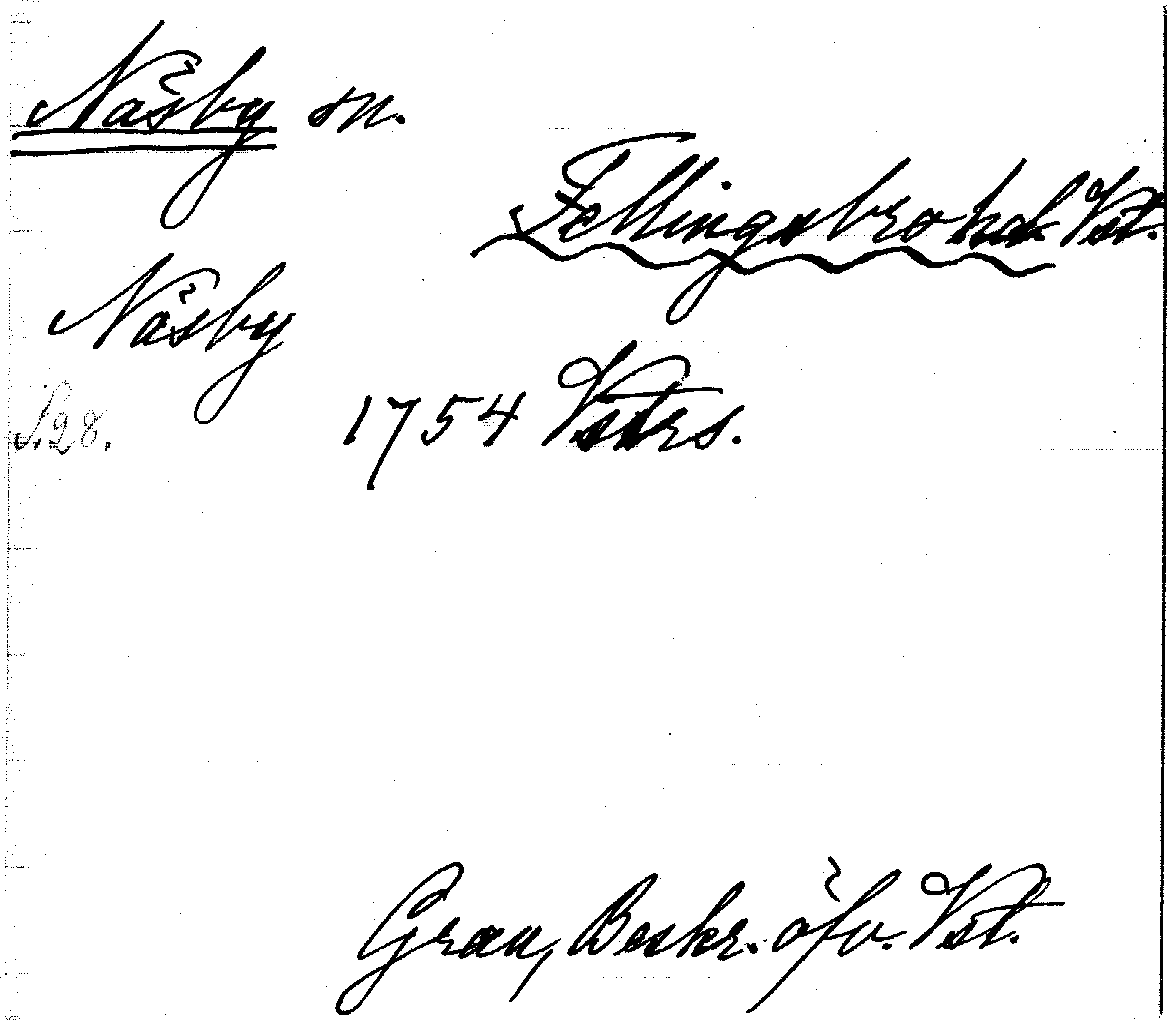 Näsby sn.
Fellingsbro hd. Vst.
Näsby
S. 28. 1754 Vstrs.
Grau, Beskr. öfv. Vst.